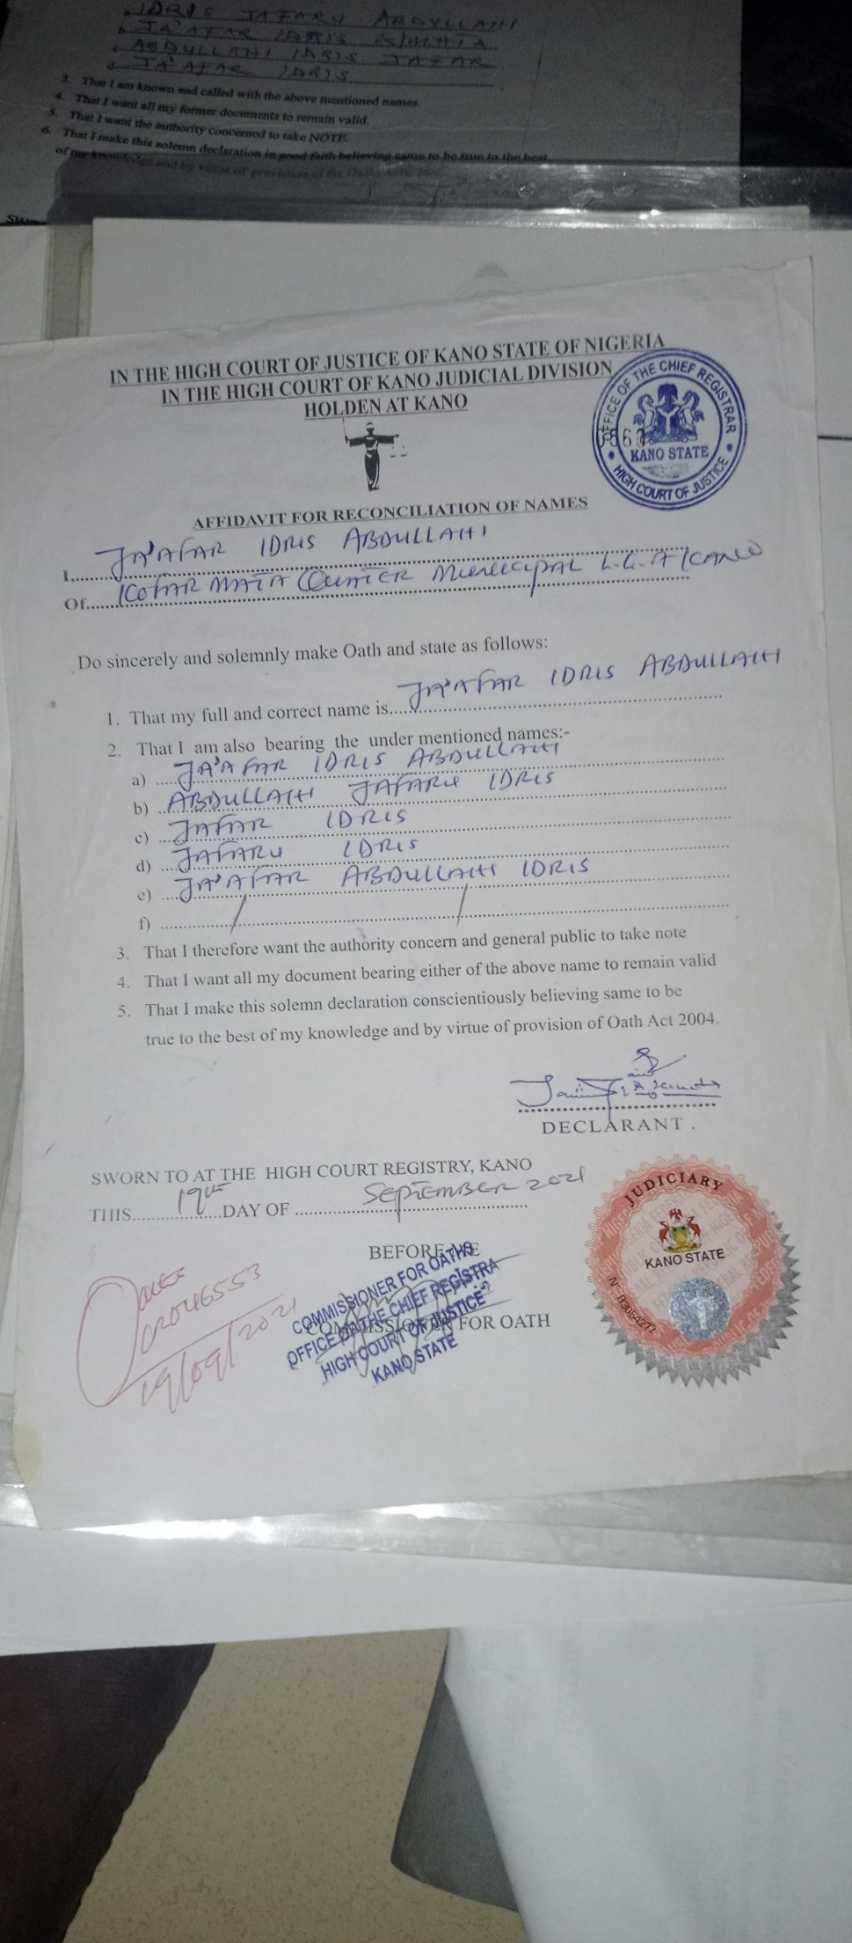 IDRIS JAFARU ABDULLAHI
JA'AFAR IDRIS
ABDULLAHI IDRIS JAFAR
JA'AFAR IDRIS
3. That I am known and called with the above mentioned names.
4. That I want all my former documents to remain valid.
5. That I want the authority concerned to take NOTE.
6. That I make this solemn declaration in good faith believing same to be true to the best
of my knowledge and by virtue of provision of the Oaths
IN THE HIGH COURT OF JUSTICE OF KANO STATE OF NIGERIA
IN THE HIGH COURT OF KANO JUDICIAL DIVISION
HOLDEN AT KANO
OFFICE OF THE CHIEF REGISTRAR
KANO STATE
HIGH COURT OF JUSTICE
AFFIDAVIT FOR RECONCILIATION OF NAMES
I. JA'AFAR IDRIS ABDULLAHI
Of KOFAR MATA QUATER MUNICIPAL L.G.A KANO
Do sincerely and solemnly make Oath and state as follows:
1. That my full and correct name is JA'AFAR IDRIS ABDULLAHI
2. That I am also bearing the under mentioned names:-
a) JA'AFAR IDRIS ABDULLAHI
b) ABDULLAHI JAFARU IDRIS
c) JAFAR IDRIS
d) JAFARU IDRIS
e) JA'AFAR ABDULLAHI IDRIS
f)
3. That I therefore want the authority concern and general public to take note
4. That I want all my document bearing either of the above name to remain valid
5. That I make this solemn declaration conscientiously believing same to be
true to the best of my knowledge and by virtue of provision of Oath Act 2004.
DECLARANT.
SWORN TO AT THE HIGH COURT REGISTRY, KANO
THIS 19th DAY OF SEPTEMBER 2021
BEFORE ME
COMMISSIONER FOR OATH
COMMISSIONER FOR OATHS
OFFICE OF THE CHIEF REGISTRA
HIGH COURT OF JUSTICE
KANO STATE
CR046553
19/09/2021
JUDICIARY
KANO STATE